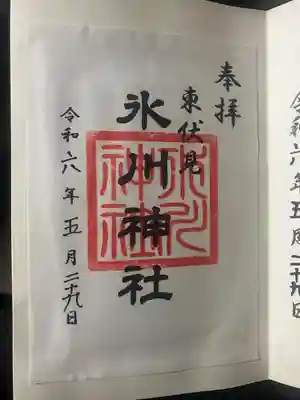 奉拝
東伏見
氷川神社
氷川
神社
令和六年五月二十九日
令和六年五月二十九日